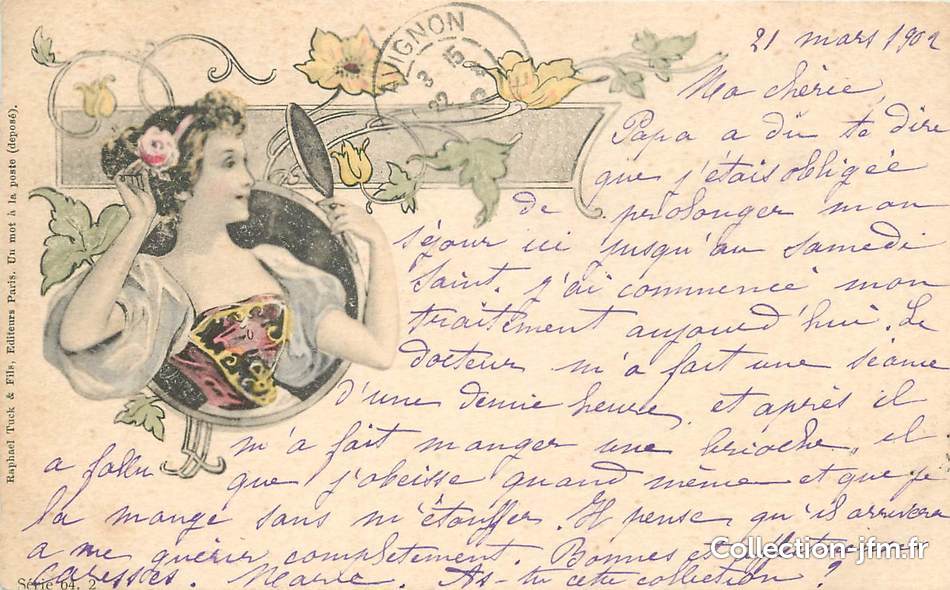 21 mars 1902
Ma chérie,
Papa a dû te dire
que j'étais obligée
de prolonger mon
séjour ici jusqu'au samedi
Saint. j'ai commencé mon
traitement aujourd'hui. Le
docteur m'a fait une séance
d'une demie heure et après il
m'a fait manger une brioche, il
a fallu que j'obeisse quand même et que je
la mange sans m'étouffer. Il pense qu'il arrivera
a me guérir complètement. Bonnes et
caresses. Marie. As-tu cette collection ?
AVIGNON
3
22
Raphael Tuck & Fils, Editeurs Paris. Un mot à la poste (deposé).
Série 64. 2
Collection-jfm.fr